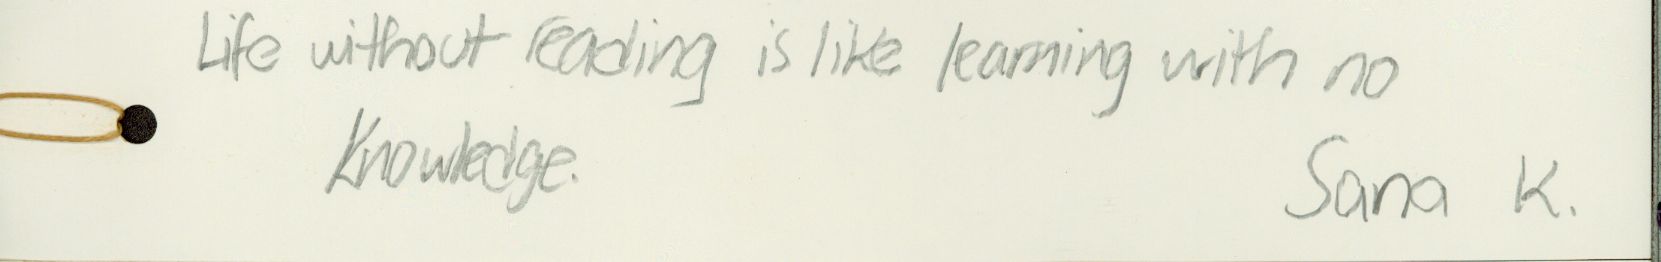 Life without reading is like learning with no
knowledge.
Sana K.